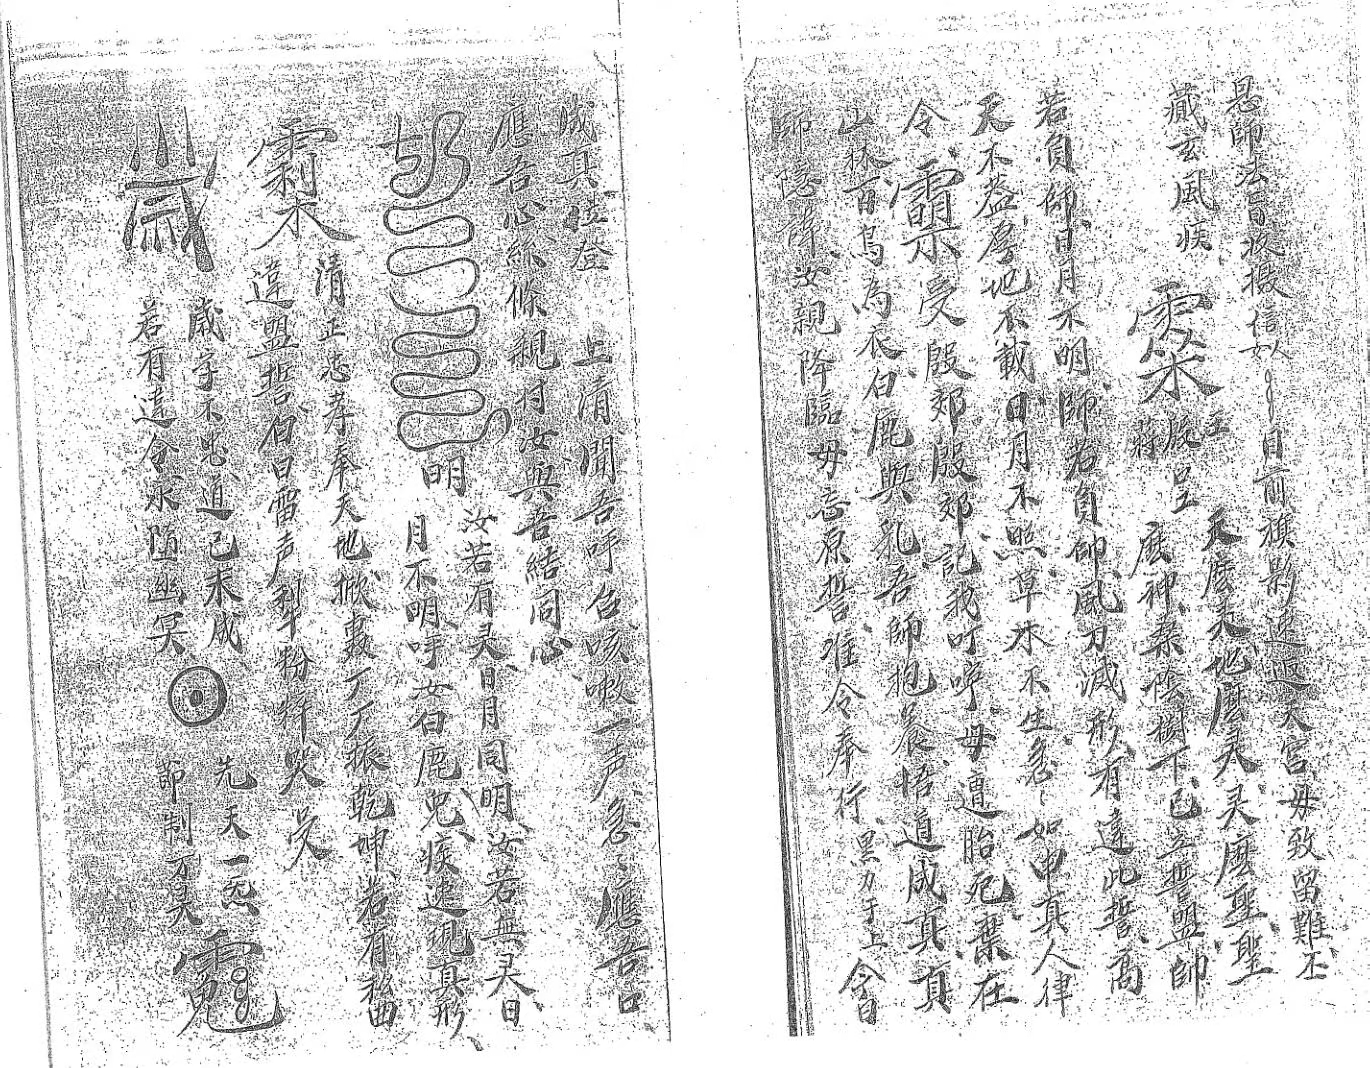 師法旨收攝信人 目前旗影速返天宮毋致留難丕
藏玄風疾 殷 蔣 天麽天地麽天灵麽聖聖
麽神桑陰樹下已立誓盟師
若負師日月不明師若負師風刀滅形有違此誓高
天不蓋厚地不載日月不照草木不生急急如申真人律
令 受殷郊殷郊記我叮嚀毋遭胎死棄在
山林百鳥為衣白鹿與乳吾師抱養悟道成真真
師隱諱汝親降臨毋忘原誓准令奉行 上令自
成真位登 上清聞吾呼召咳嗽一声急急應吾口
應吾心絲絛親付汝與吾結同心
汝若有灵日月同明汝若無灵日
明 月不明呼女白鹿兒疾速現真形
清正忠孝奉天地 丁丁振乾坤若有私曲
違盟誓白日雷声 粉碎哭 受
歲字不忠道已未成 先天一炁
若有違令永堕幽冥 即制万天